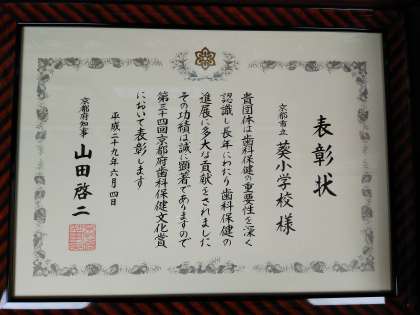 表彰状
京都市立
葵小学校様
貴団体は歯科保健の重要性を深く
認識し長年にわたり歯科保健の
進展に多大な貢献をされました
その功績は誠に顕著でありますので
第三十四回京都府歯科保健文化賞
において表彰します
平成二十九年六月四日
京都府知事
山田啓二